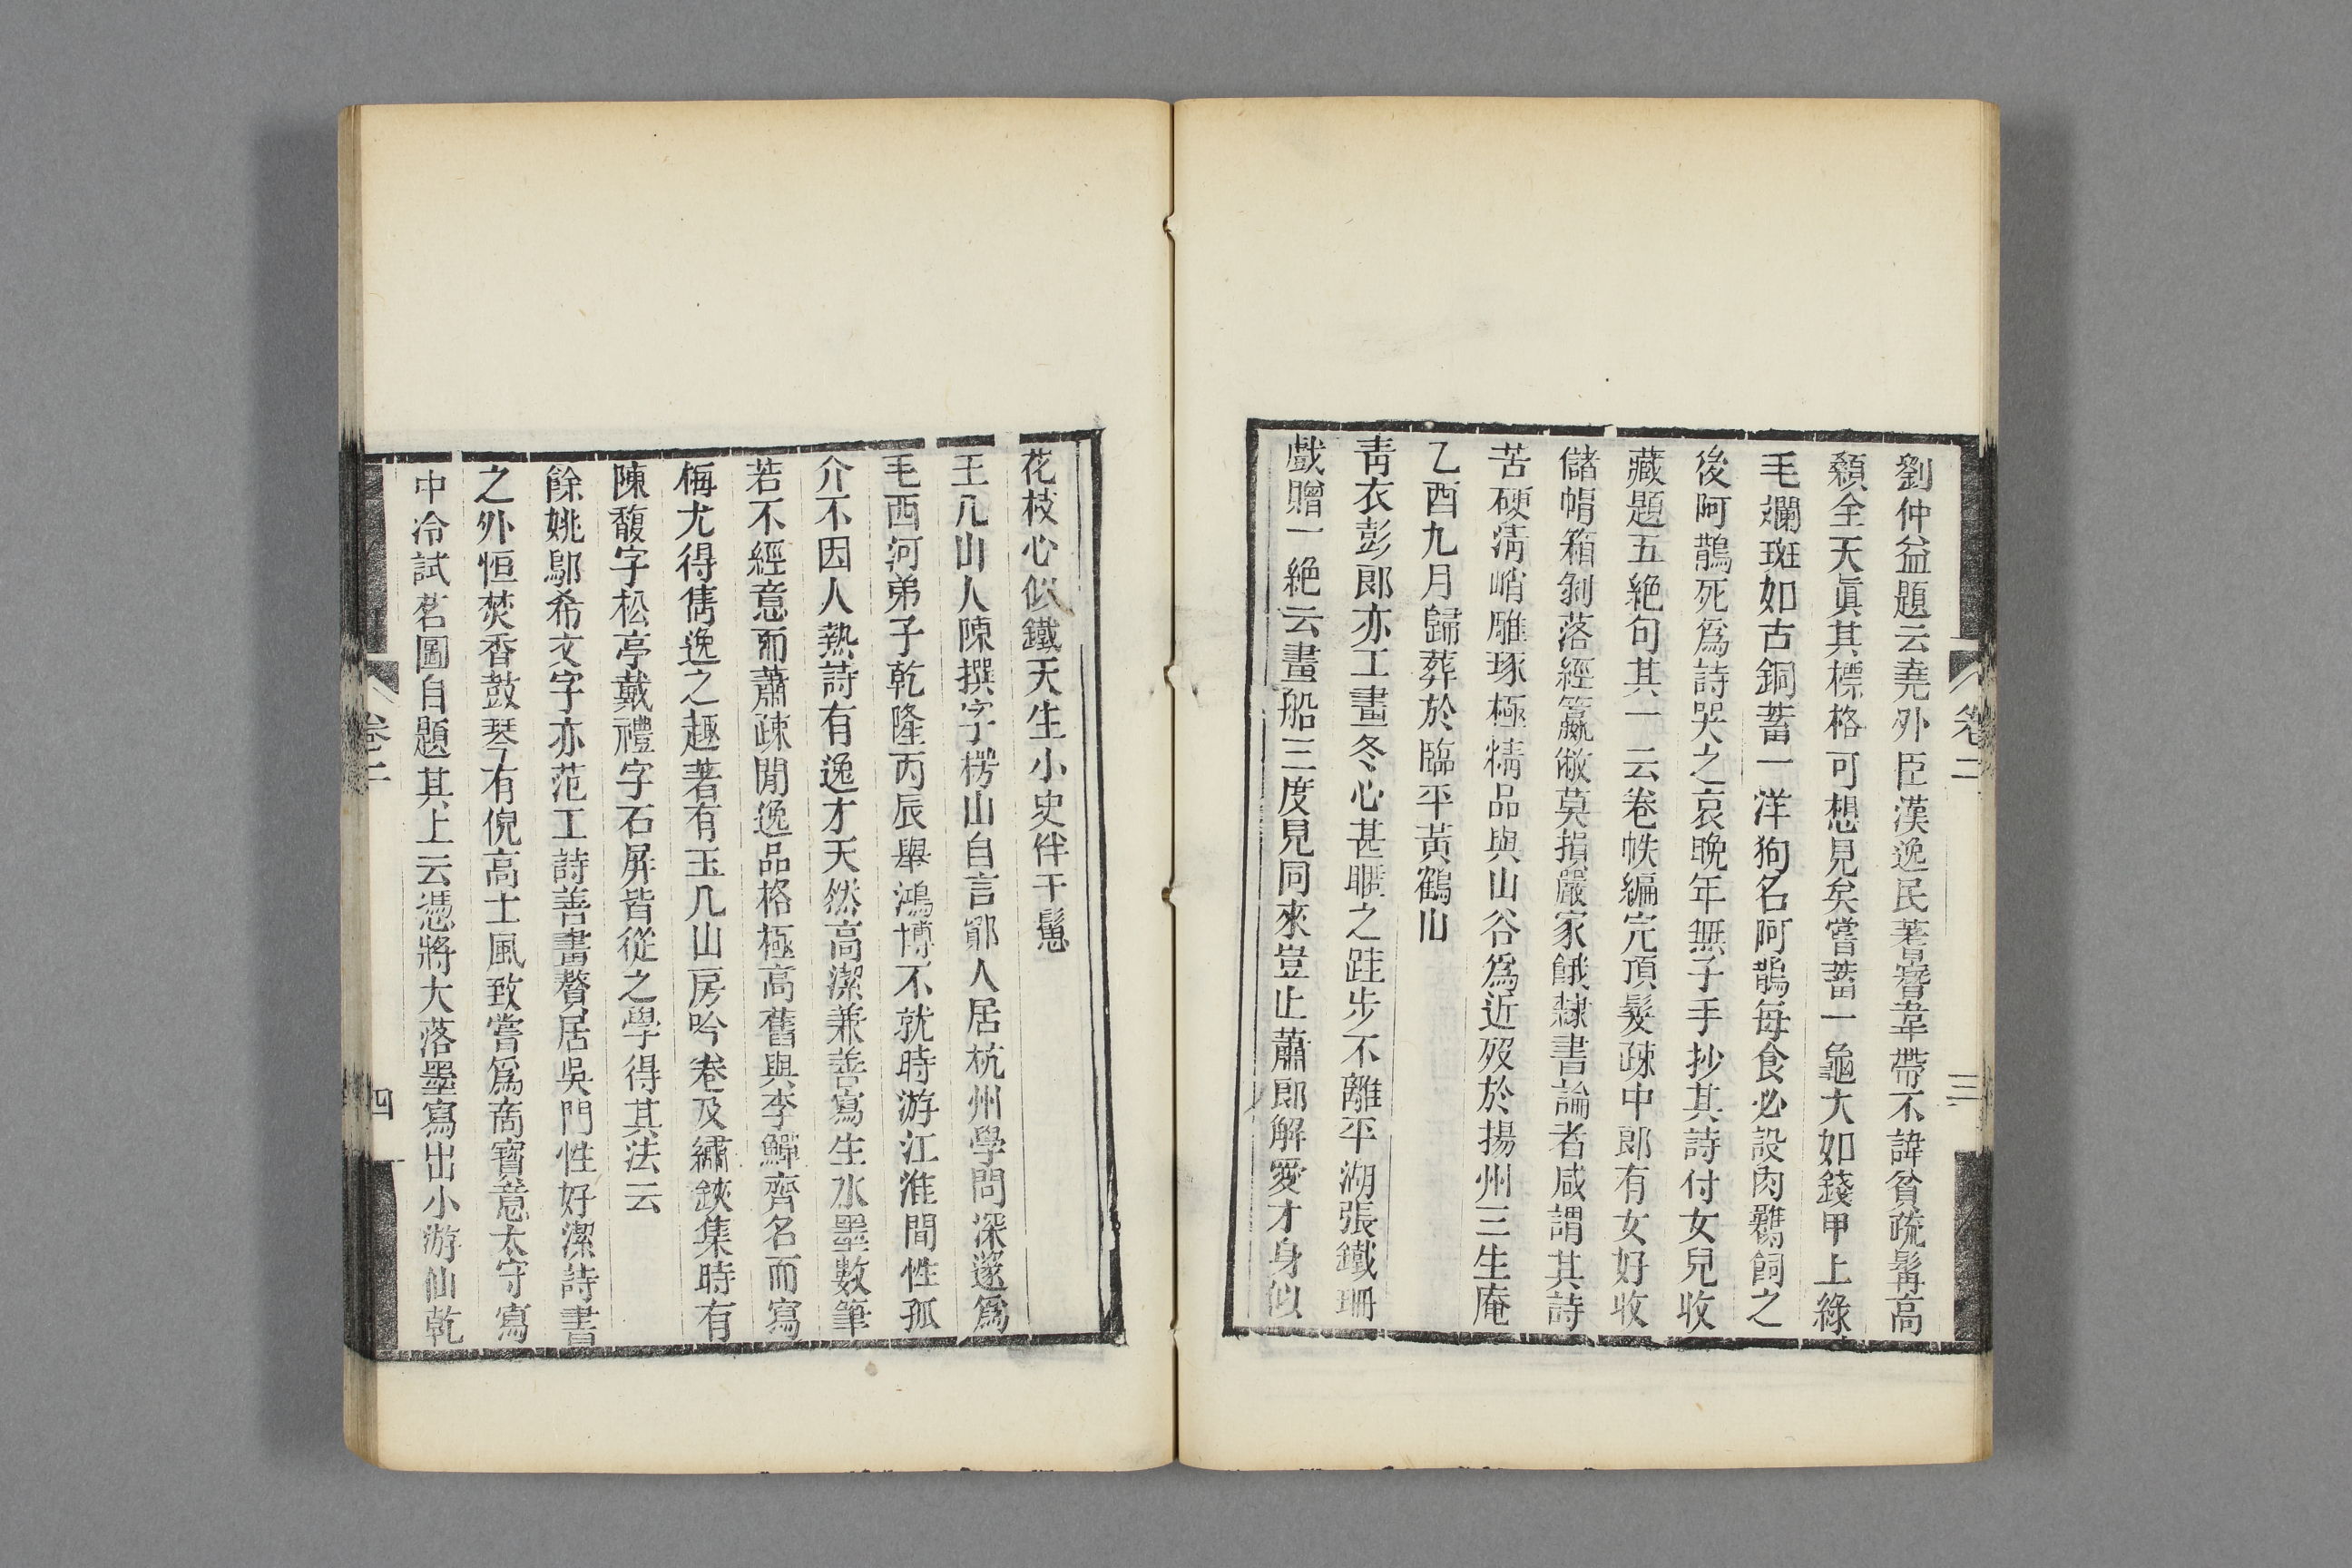 劉仲益題云堯外臣漢逸民蓍簪韋帶不諱貧疏髯高
顙全天眞其標格可想見矣嘗蓄一龜大如錢甲上綠
毛斕斑如古銅蓄一洋狗名阿鵲每食必設肉鷄飼之
後阿鵲死爲詩哭之哀晚年無子手抄其詩付女兒收
藏題五絶句其一云卷帙編完頂髮疎中郎有女好收
儲帩箱剝落經籯敝莫損嚴家餓隷書論者咸謂其詩
苦硬淸峭雕琢極精品與山谷爲近歿於揚州三生庵
乙酉九月歸葬於臨平黃鶴山
靑衣彭郎亦工畫冬心甚暱之跬步不離平湖張鐵珊
戲贈一絶云畫船三度見同來豈止蕭郎解愛才身似
卷二
三
花枝心似鐵天生小史伴干髷
玉几山人陳撰字楞山自言鄞人居杭州學問深邃爲
毛西河弟子乾隆丙辰舉鴻博不就時游江淮間性孤
介不因人熱詩有逸才天然高潔兼善寫生水墨數筆
若不經意而蕭疎閒逸品格極高舊與李鱓齊名而寫
梅尤得雋逸之趣著有玉几山房吟卷及繡鋏集時有
陳馥字松亭戴禮字石屏皆從之學得其法云
餘姚鄔希文字亦范工詩善畫贅居吳門性好潔詩書
之外恒焚香鼓琴有倪高士風致嘗爲商寶意太守寫
中冷試茗圖自題其上云憑將大落墨寫出小游仙乾
卷二
四